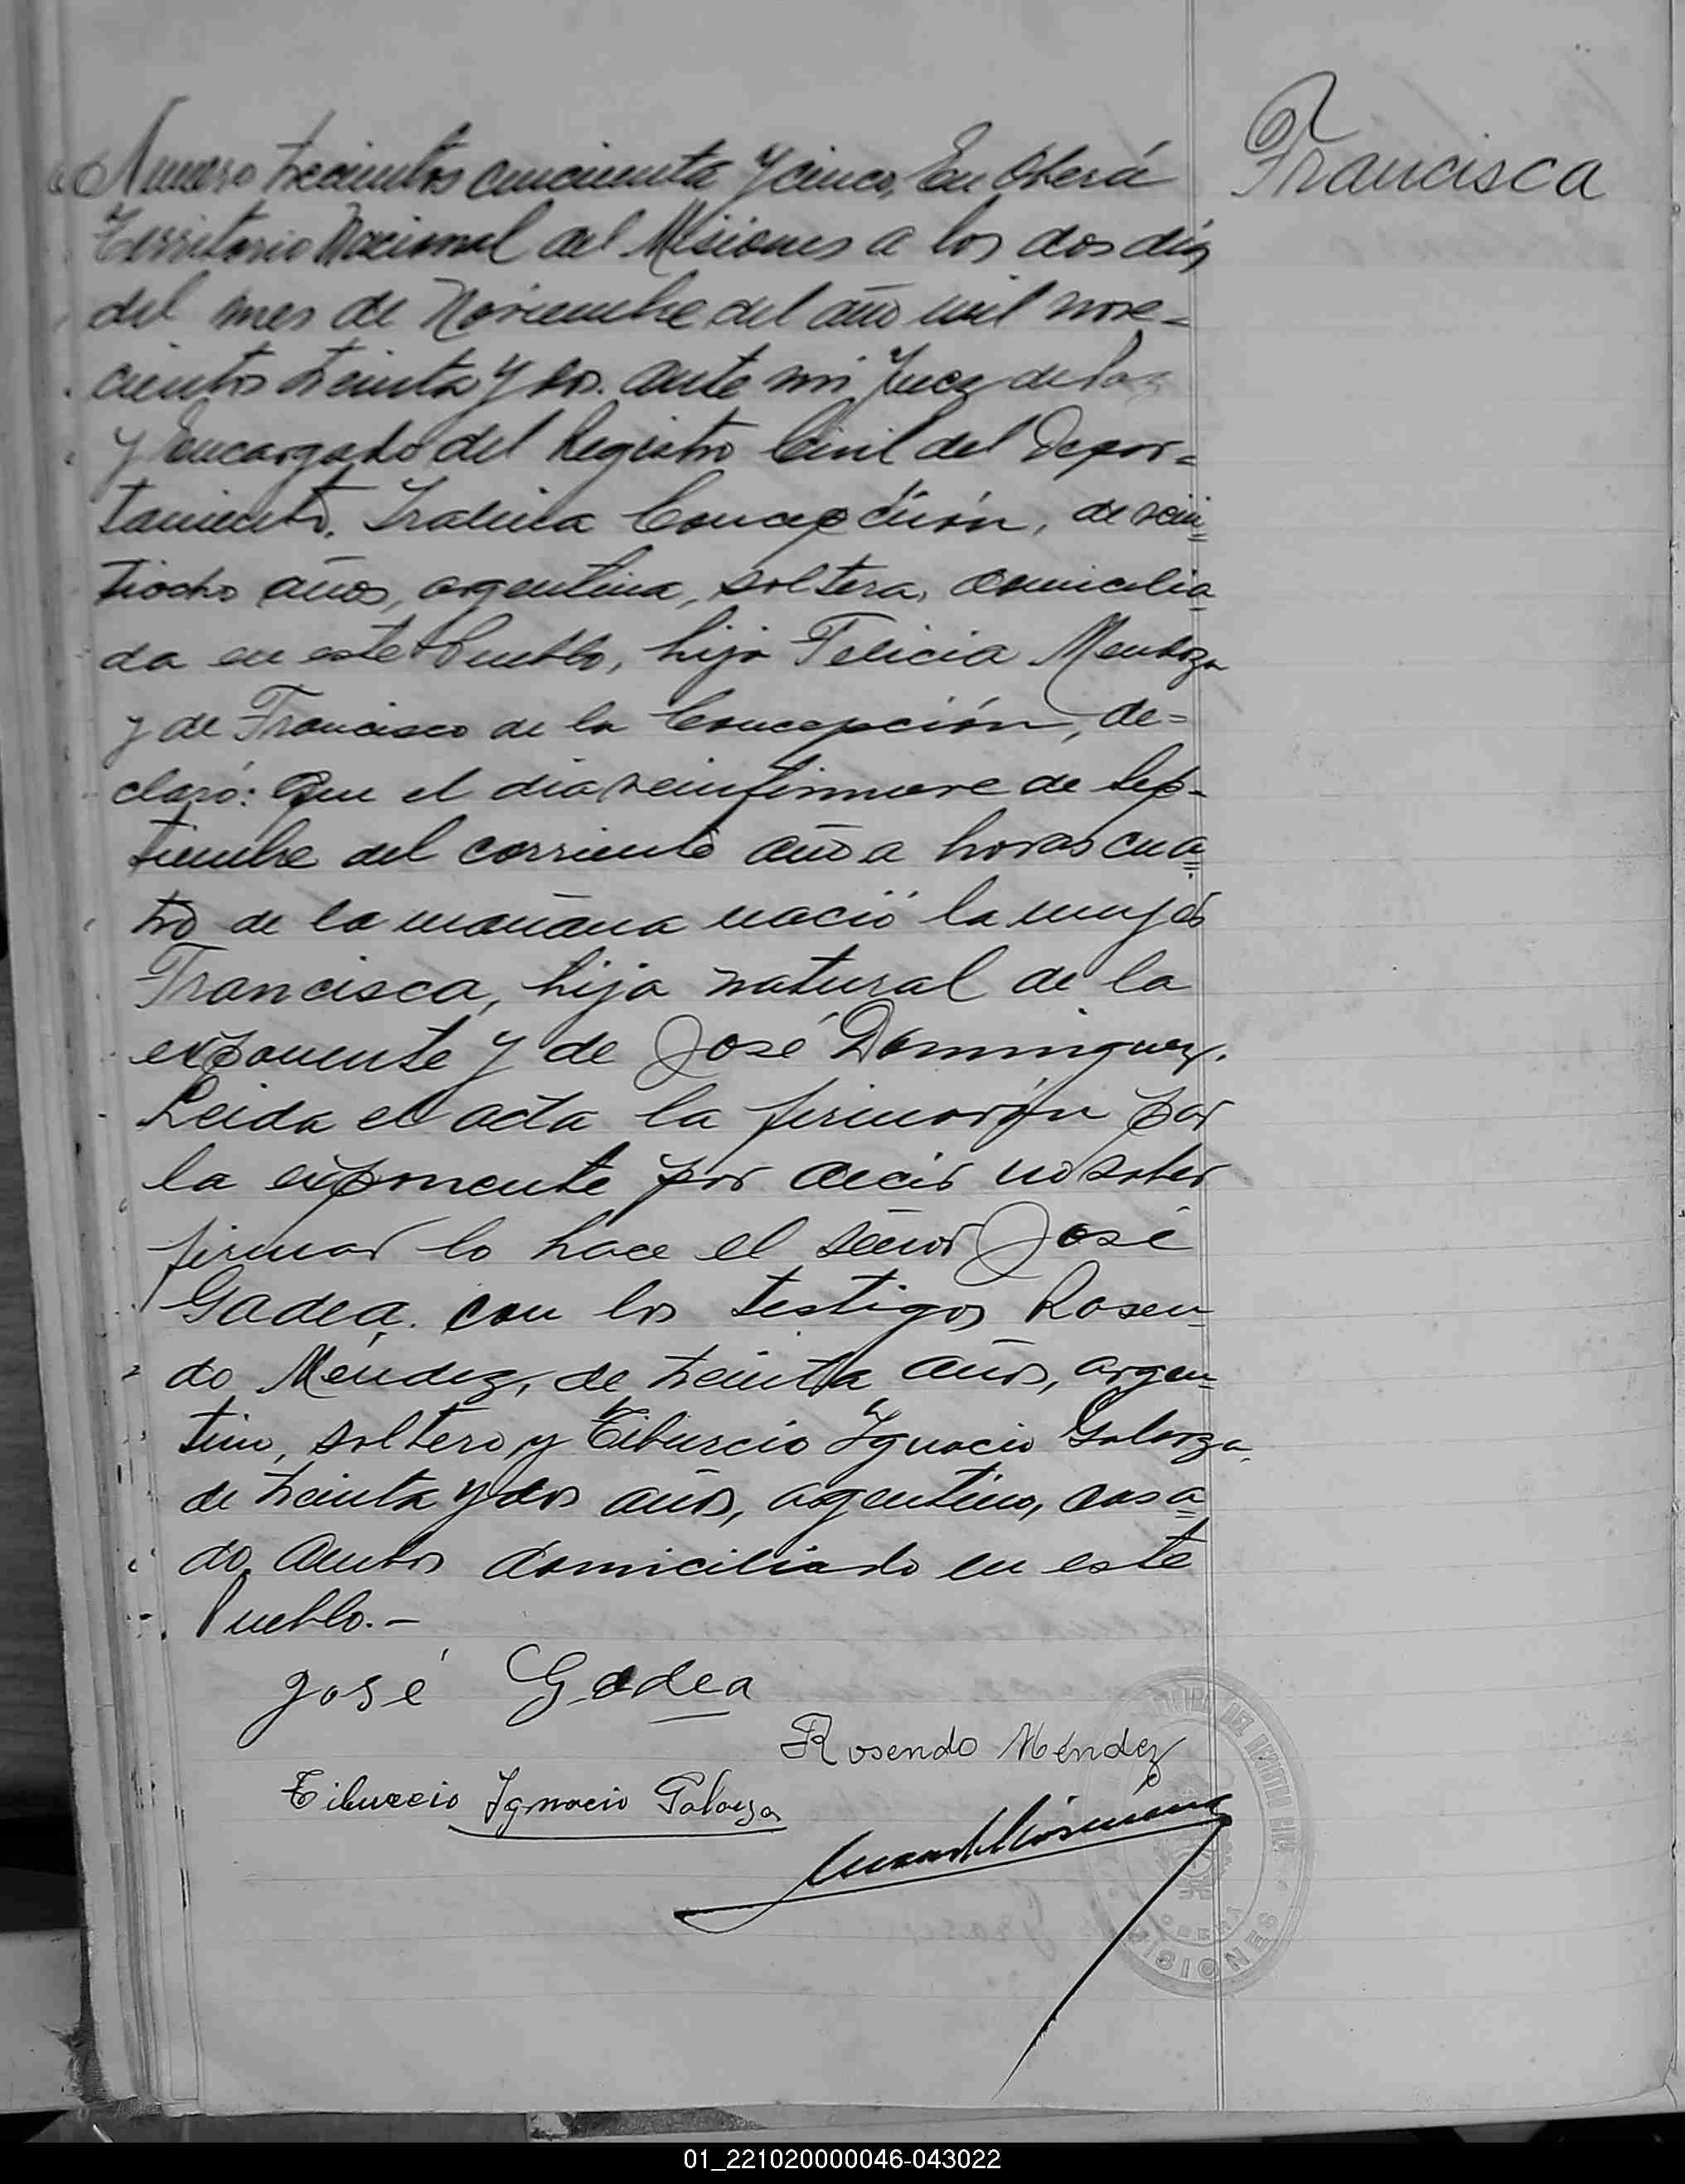 Francisca
Numero trecientos cincuenta y cinco, En Oberá
Territorio Nacional del Misiones a los dos días
del mes de Noviembre del año mil nove=
cientos treinta y dos. ante mi Juez de Paz
y Encargado del Registro Civil del Depar=
tamiento. Concepción, de vein=
tiocho años, argentina, soltera, domicilia
da en este Pueblo, hija Felicia Mendoza
y de Francisco de la Concepción, de=
claró: Que el dia veintinueve de Sep-
tiembre del corriente año a horas cua=
tro de la mañana nació la mujer
Francisca, hija natural de la
exponente y de José Dominguez.
Leida el acta la firmarón por
la exponente por decir no saber
firmar lo hace el señor José
Gadea. con los testigos Rosen=
do Méndez, de treinta años, argen=
tino, soltero y Tiburcio Ignacio Galarza,
de treinta y dos años, argentino, casa=
do. Ambos domiciliado en este
Pueblo.-
José Gadea
Rosendo Méndez
Tiburcio Ignacio Galarza
OBERÁ
MISIONES
01_221020000046-043022